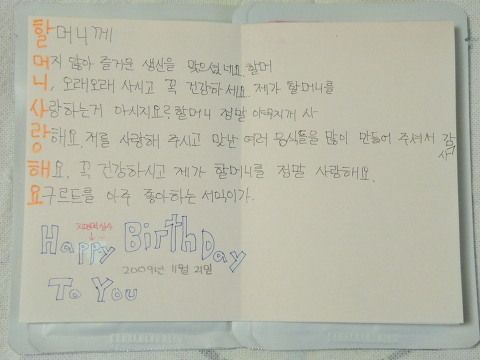 할머니께
머지 않아 즐거운 생신을 맞으셨네요. 할머
니, 오래오래 사시고 꼭 건강하세요. 제가 할머니를
사랑하는거 아시지요? 할머니 정말 사
랑해요. 저를 사랑해 주시고 맛난 여러 음식들을 많이 만들어 주셔서 감사
해요. 꼭 건강하시고 제가 할머니를 정말 사랑해요.
요구르트를 아주 좋아하는 서익이가.
Happy BirthDay
2009년 11월 21일
To You